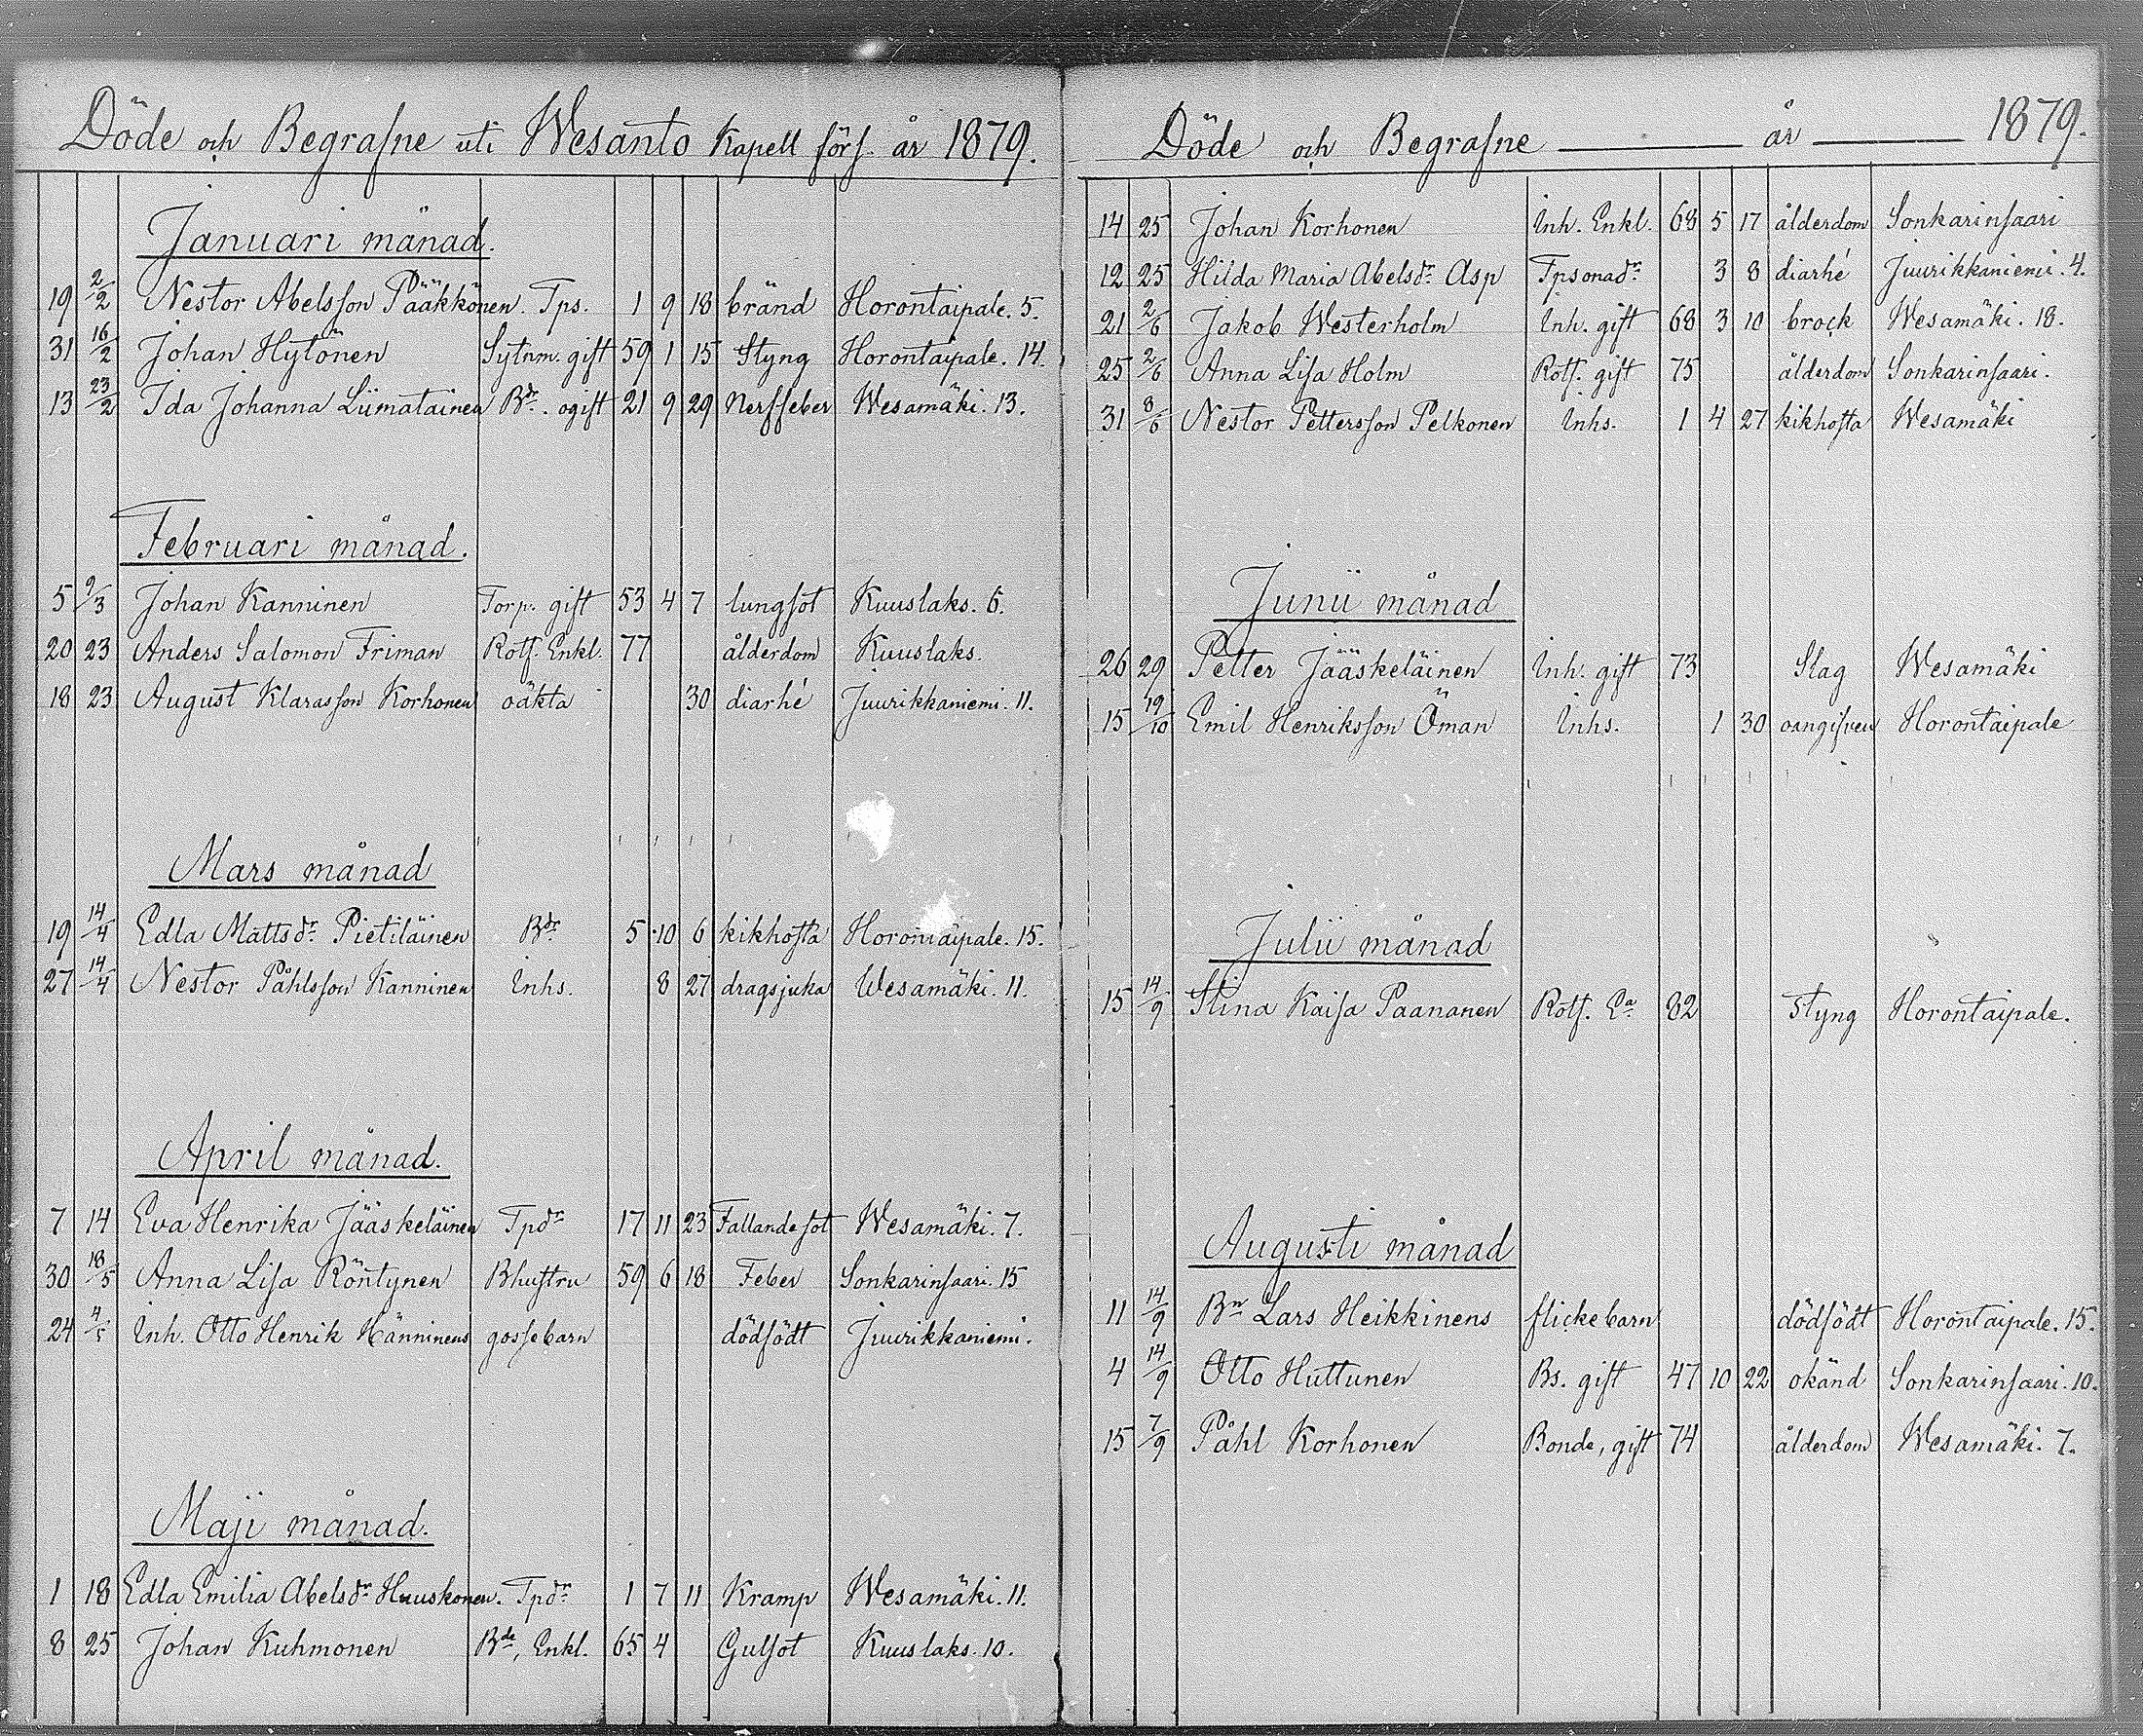 Döde och Begrafne uti Wesanto Kapell förs. år 1879.
Januari månad.
19 2/2 Nestor Abelsson Pääkkönen. Tps. 1 9 18 bränd Horontaipale. 5.
31 16/2 Johan Hytönen Sytnm. gift 59 1 15 Styng Horontaipale. 14.
13 23/2 Ida Johanna Liimatainen Bdr. ogift 21 9 29 Nerffeber Wesamäki. 13.
Februari månad.
5 9/3 Johan Kanninen Torp. gift 53 4 7 lungsot Kuuslaks. 6.
20 23 Anders Salomon Friman Rotf. Enkl. 77 ålderdom Kuuslaks.
18 23 August Klarasson Korhonen oäkta 30 diarhé Juurikkaniemi. 11.
Mars månad
19 14/4 Edla Mattsdr Pietiläinen Bdr 5 10 6 kikhosta Horontaipale. 15.
27 14/4 Nestor Påhlsson Kanninen Inhs. 8 27 dragsjuka Wesamäki. 11.
April månad.
7 14 Eva Henrika Jääskeläinen Tpdr 17 11 23 Fallandesot Wesamäki. 7.
30 18/5 Anna Lisa Röntynen Bhustru 59 6 18 Feber Sonkarinsaari. 15
24 4/5 Inh. Otto Henrik Hänninens gossebarn dödfödt Juurikkaniemi.
Maji månad.
1 18 Edla Emilia Abelsdr Huuskonen. Tpdr 1 7 11 Kramp Wesamäki. 11.
8 25 Johan Kuhmonen Bde, Enkl. 65 4 Gulsot Kuuslaks. 10.
Döde och Begrafne år 1879.
14 25 Johan Korhonen Inh. Enkl. 68 5 17 ålderdom Sonkarinsaari
12 25 Hilda Maria Abelsdr Asp Tpsonadr 3 8 diarhé Juurikkaniemi. 4.
21 2/6 Jakob Westerholm Inh. gift 68 3 10 brock Wesamäki. 18.
25 2/6 Anna Lisa Holm Rotf. gift 75 ålderdom Sonkarinsaari.
31 8/6 Nestor Pettersson Pelkonen Inhs. 1 4 27 kikhosta Wesamäki
Junii månad
26 29 Petter Jääskeläinen Inh. gift 73 Slag Wesamäki
15 19/10 Emil Henriksson Öman Inhs. 1 30 oangifven Horontaipale
Julii månad
15 14/9 Stina Kaisa Paananen Rotf. Ea 82 Styng Horontaipale.
Augusti månad
11 14/9 Bn Lars Heikkinens flickebarn dödfödt Horontaipale. 15.
4 14/9 Otto Huttunen Bs. gift 47 10 22 okänd Sonkarinsaari. 10.
15 7/9 Påhl Korhonen Bonde, gift 74 ålderdom Wesamäki. 7.